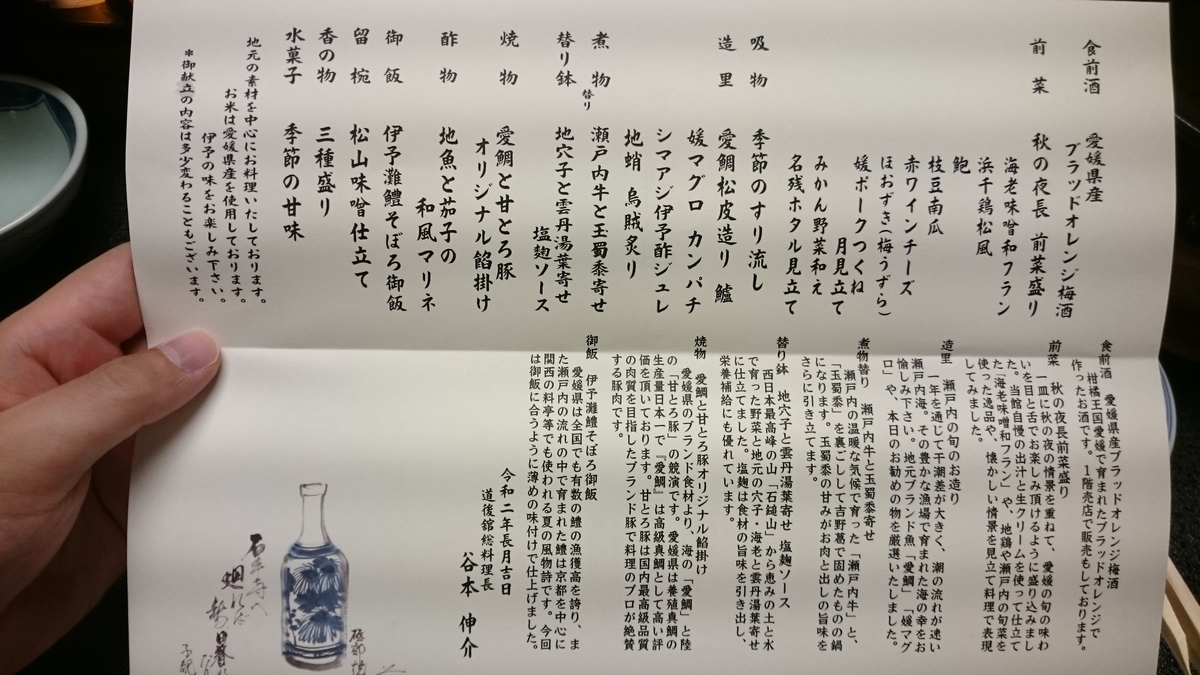 食前酒 愛媛県産
ブラッドオレンジ梅酒
前菜 秋の夜長 前菜盛り
海老味噌和フラン
浜千鶏松風
鮑
枝豆南瓜
赤ワインチーズ
ほおずき(梅うずら)
媛ポークつくね
月見立て
みかん野菜和え
名残ホタル見立て
吸物 季節のすり流し
造里 愛鯛松皮造り 鱸
媛マグロ カンパチ
シマアジ伊予酢ジュレ
地蛸 烏賊炙り
煮物替り 瀬戸内牛と玉蜀黍寄せ
替り鉢 地穴子と雲丹湯葉寄せ
塩麹ソース
焼物 愛鯛と甘とろ豚
オリジナル餡掛け
酢物 地魚と茄子の
和風マリネ
御飯 伊予灘鱧そぼろ御飯
留椀 松山味噌仕立て
香の物 三種盛り
水菓子 季節の甘味
地元の素材を中心にお料理いたしております。
お米は愛媛県産を使用しております。
伊予の味をお楽しみ下さい。
*御献立の内容は多少変わることもございます。
食前酒 愛媛県産ブラッドオレンジ梅酒
柑橘王国愛媛で育まれたブラッドオレンジで
作ったお酒です。1階売店で販売もしております。
前菜 秋の夜長前菜盛り
一皿に秋の夜の情景を重ねて、愛媛の旬の味わ
いを目と舌でお楽しみ頂けるように盛り込みまし
た。当館自慢の出汁と生クリームを使って仕立て
た「海老味噌和フラン」や、地鶏や瀬戸内の旬菜を
使った逸品や、懐かしい情景を見立て料理で表現
してみました。
造里 瀬戸内の旬のお造り
一年を通じて干潮差が大きく、潮の流れが速い
瀬戸内海。その豊かな漁場で育まれた海の幸をお
愉しみ下さい。地元ブランド魚「愛鯛」「媛マグ
ロ」や、本日のお勧めの物を厳選いたしました。
煮物替り 瀬戸内牛と玉蜀黍寄せ
瀬戸内の温暖な気候で育った「瀬戸内牛」と、
「玉蜀黍」を裏ごしして吉野葛で固めたものの鍋
になります。玉蜀黍の甘みがお肉と出しの旨味を
さらに引き立てます。
替り鉢 地穴子と雲丹湯葉寄せ 塩麹ソース
西日本最高峰の山「石鎚山」から恵みの土と水
で育った野菜と地元の穴子・海老と雲丹湯葉寄せ
に仕立てました。塩麹は食材の旨味を引き出し、
栄養補給にも優れています。
焼物 愛鯛と甘とろ豚オリジナル餡掛け
愛媛県のブランド食材より、海の「愛鯛」と陸
の「甘とろ豚」の競演です。愛媛県は養殖真鯛の
生産量日本一で『愛鯛』は高級真鯛として高い評
価を頂いております。甘とろ豚は国内最高級品質
の肉質を目指したブランド豚で料理のプロが絶賛
する豚肉です。
御飯 伊予灘鱧そぼろ御飯
愛媛県は全国でも有数の鱧の漁獲高を誇り、ま
た瀬戸内の流れの中で育まれた鱧は京都を中心に
関西の料亭等でも使われる夏の風物詩です。今回
は御飯に合うように薄めの味付けで仕上げました。
令和二年長月吉日
道後館総料理長
谷本 伸介
砥部焼